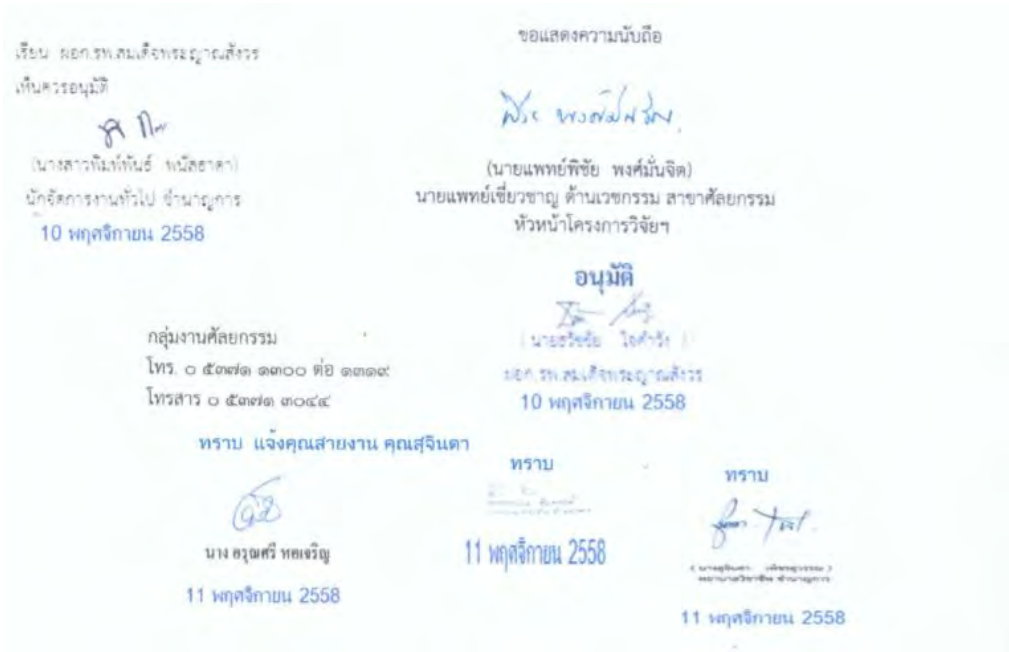 ขอแสดงความนับถือ
เรียน ผอก.รพ.สมเด็จพระญาณสังวร
เห็นควรอนุมัติ
(นางสาวพิมพ์พันธ์
นักจัดการงานทั่วไป ชำนาญการ
10 พฤศจิกายน 2558
(นายแพทย์พิชัย พงศ์มั่นจิต)
นายแพทย์เชี่ยวชาญ ด้านเวชกรรม สาขาศัลยกรรม
หัวหน้าโครงการวิจัยฯ
อนุมัติ
ผอก.รพ.สมเด็จพระญาณสังวร
10 พฤศจิกายน 2558
กลุ่มงานศัลยกรรม
โทร. ๐ ๕๓๗๑ ๑๓๐๐ ต่อ ๑๓๑๙
โทรสาร ๐ ๕๓๗๑ ๓๐๔๔
ทราบ แจ้งคุณสายงาน คุณสุจินตา
นาง อรุณศรี หอเจริญ
11 พฤศจิกายน 2558
ทราบ
11 พฤศจิกายน 2558
ทราบ
พยาบาลวิชาชีพ ชำนาญการ
11 พฤศจิกายน 2558